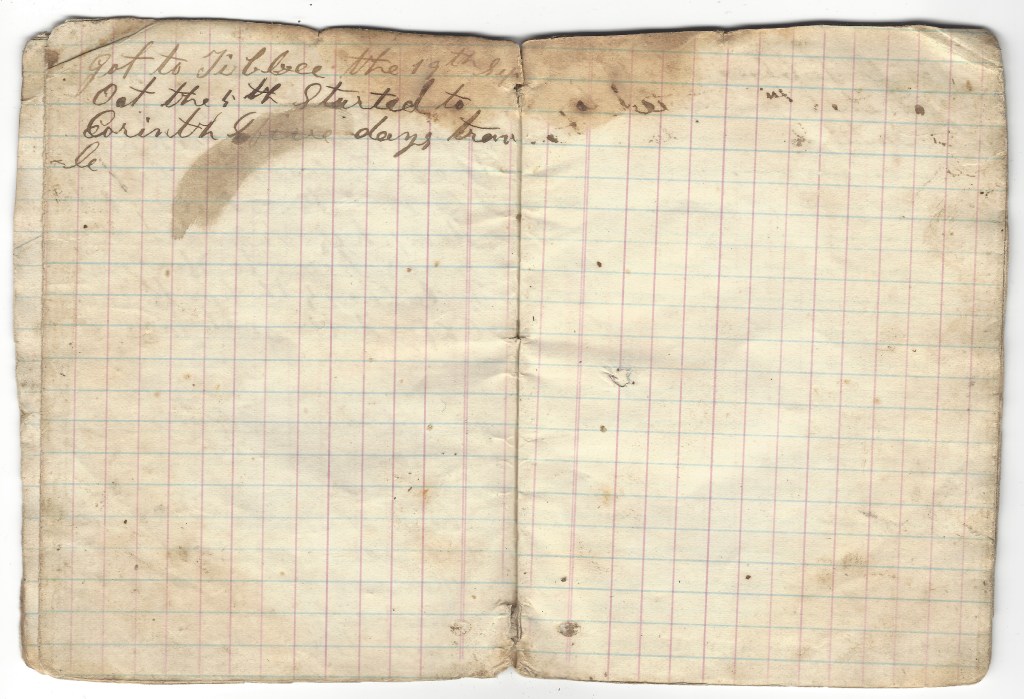 got to Tibbee the 19th Sep
Oct the 5th Started to
Corinth five days trav
-le